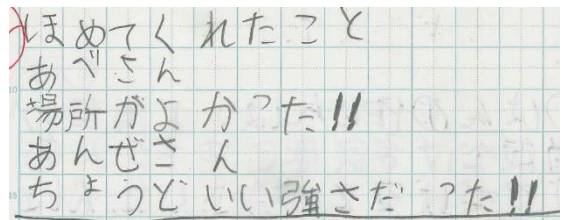 ほめてくれたこと
あべさん
場所がよかった!!
あんぜさん
ちょうどいい強さだった!!